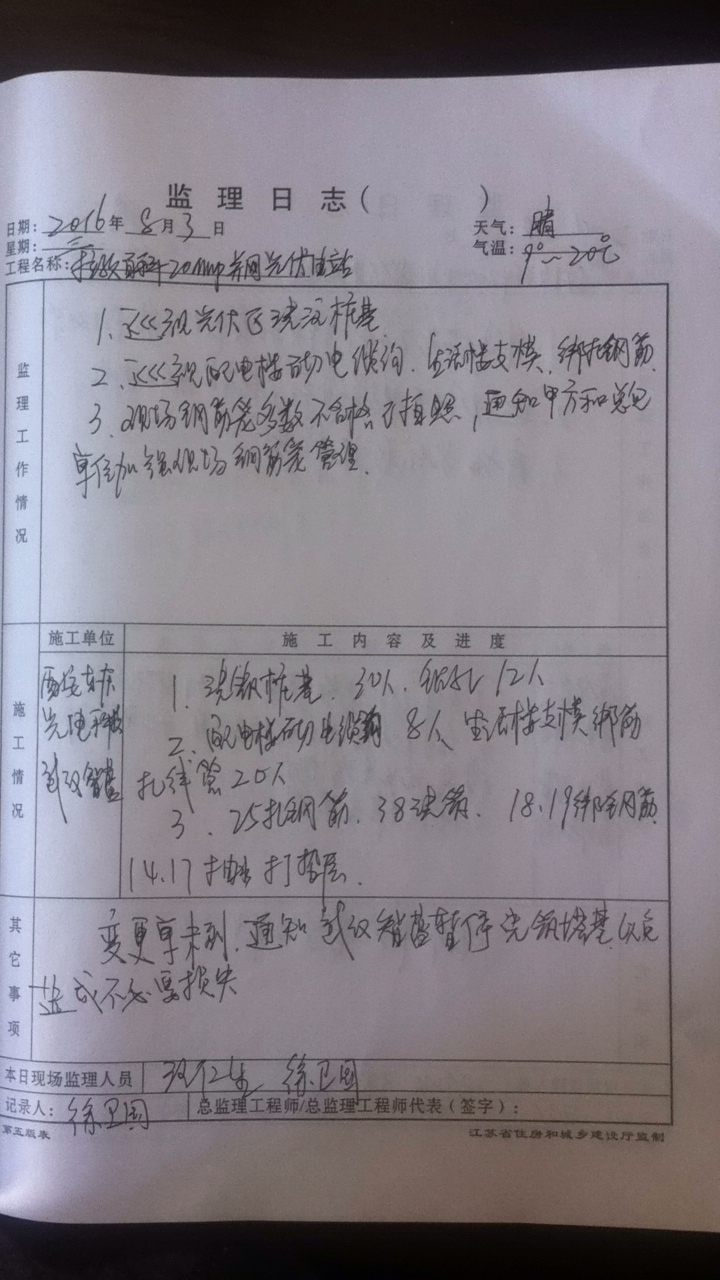 监理日志( )
日期: 2016年 8月3日 天气: 晴
星期: 三 气温: 9°~20℃
工程名称: 20MWp并网光伏电站
监理工作情况
1、巡视光伏区浇注桩基.
2、巡视配电楼砌电缆沟. 生活楼支模、绑扎钢筋.
3、现场钢筋笼多数不合格,拍照,通知甲方和总包
单位加强现场钢筋笼管理.
施工单位 施工内容及进度
施工情况
光电
武汉智盛
1、浇筑桩基. 30人. 12人
2、配电楼砌电缆沟 8人、生活楼支模绑筋
扎线管20人
3、25扎钢筋. 38浇筑. 18.19绑钢筋.
14.17抽水打垫层.
其它事项
变更单未到.通知武汉智盛暂停浇筑塔基.以免
造成不必要损失
本日现场监理人员 徐卫国
记录人: 徐卫国 总监理工程师/总监理工程师代表(签字):
第五版表 江苏省住房和城乡建设厅监制